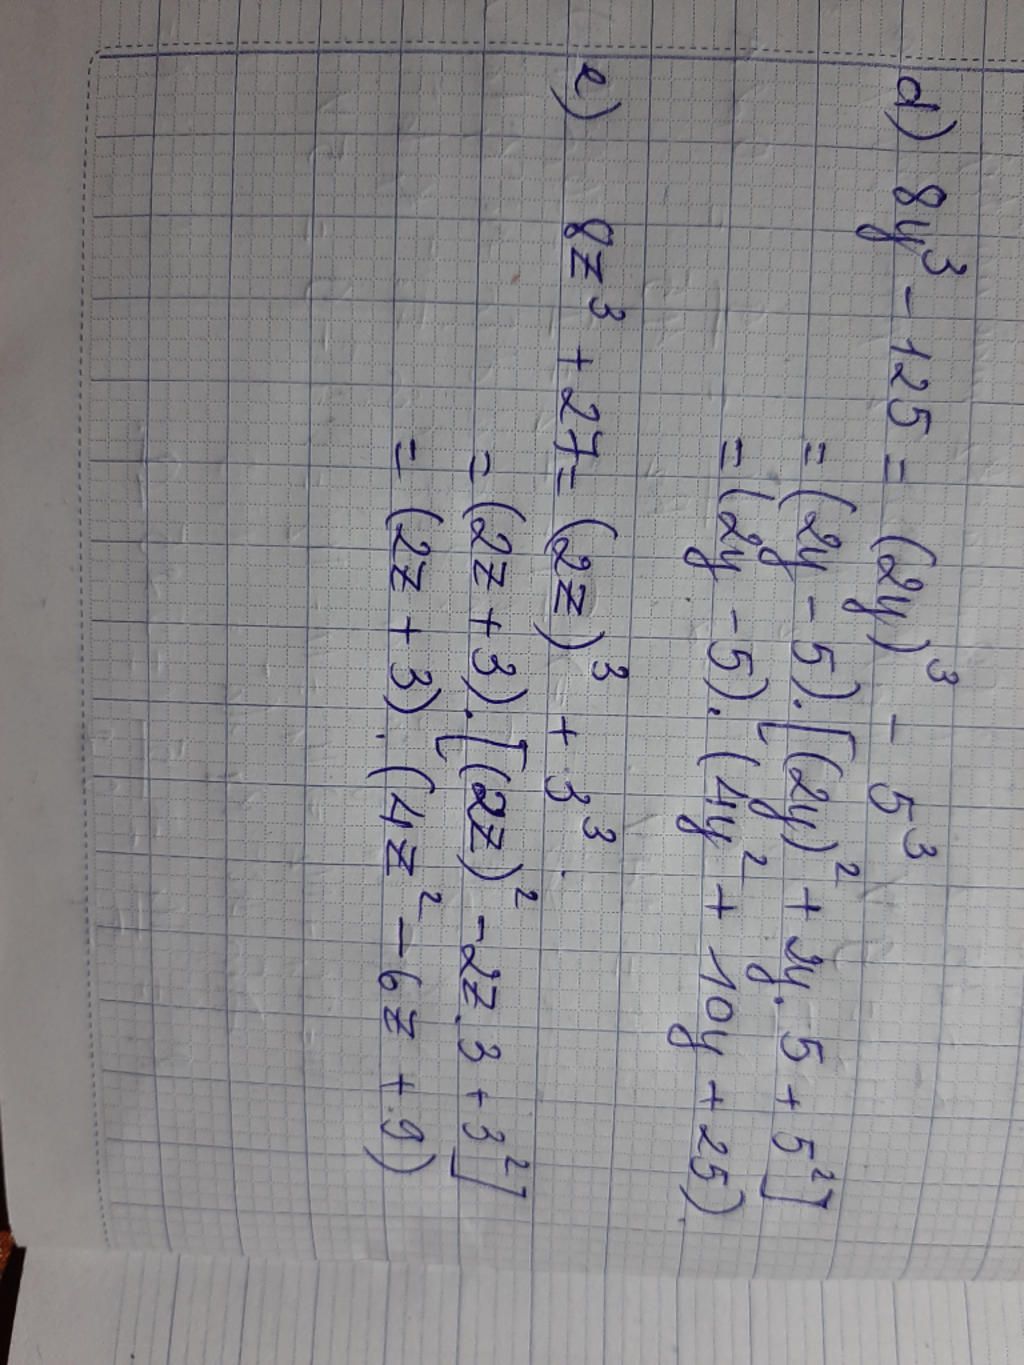 d) 8y³ - 125 = (2y)³ - 5³
= (2y - 5).[(2y)² + 2y. 5 + 5²]
= (2y - 5). (4y² + 10y + 25)
e) 8z³ + 27 = (2z)³ + 3³.
= (2z + 3).[(2z)² - 2z.3 + 3²]
= (2z + 3). (4z² - 6z + 9)